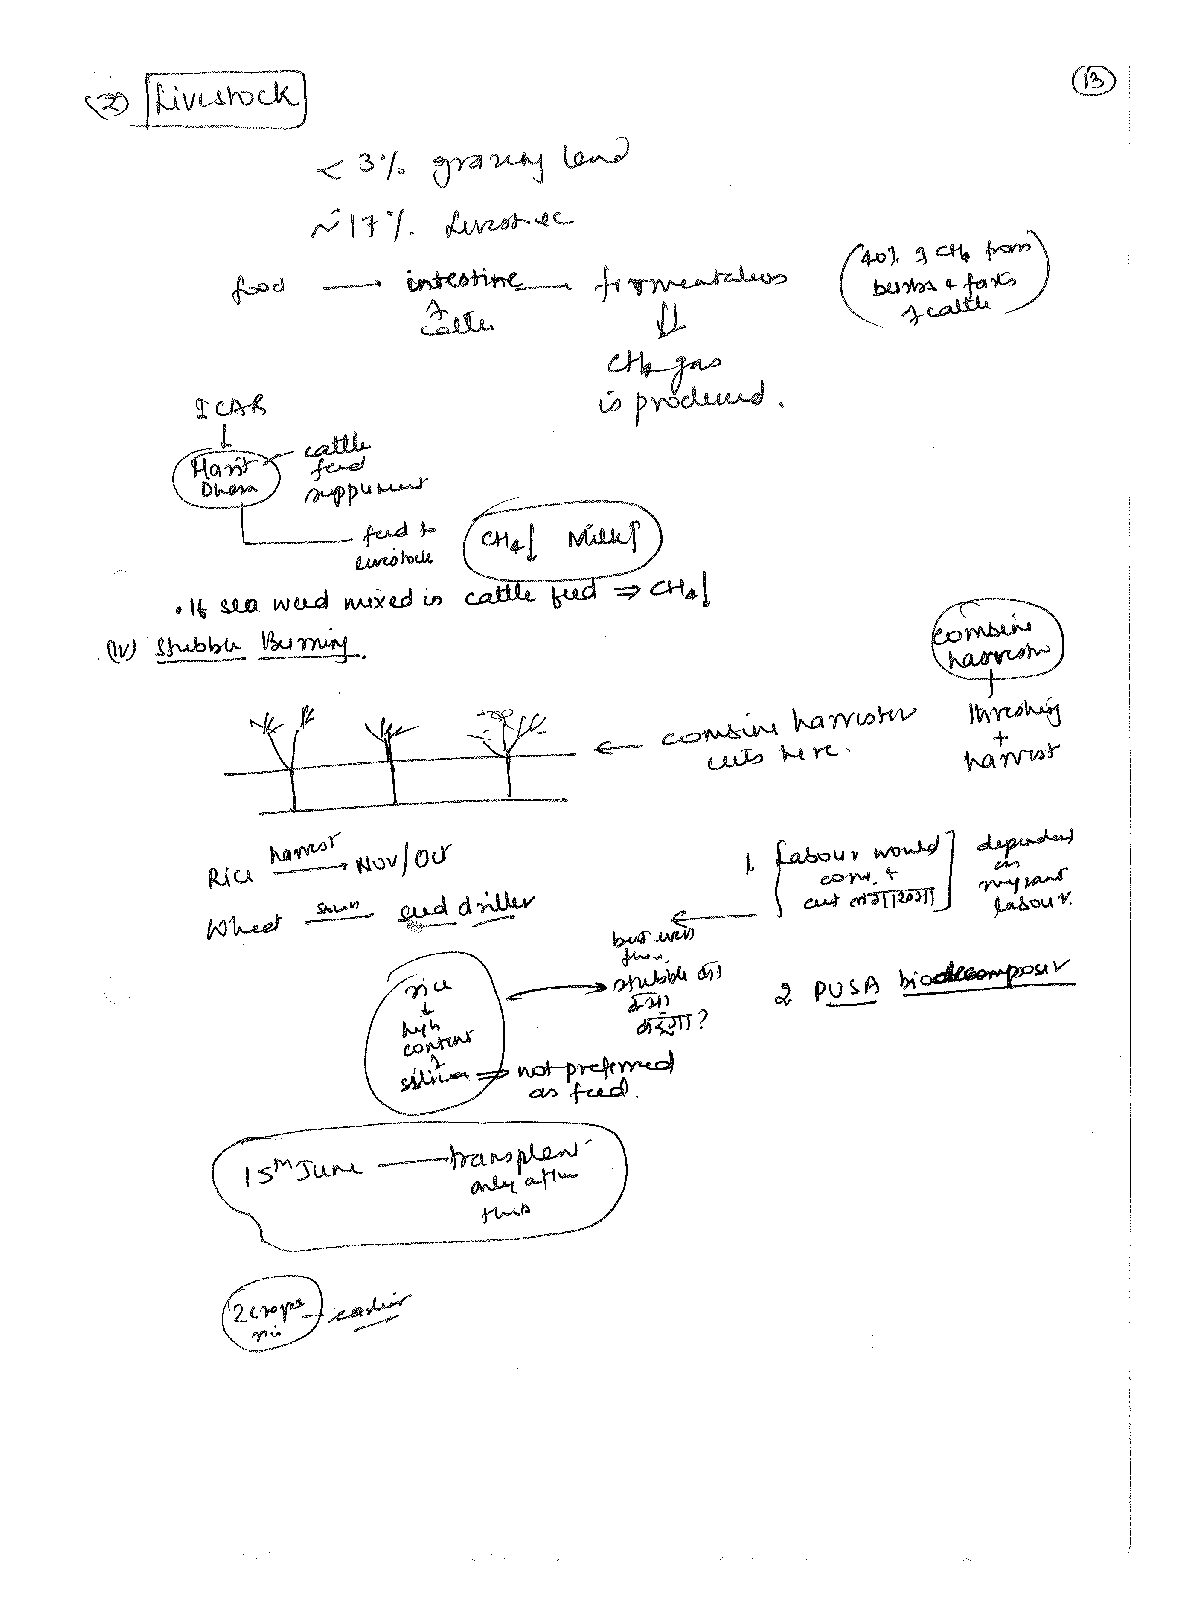 13
(2) Livestock
< 3% grazing land
~17% livestock
food → intestine — fermentations
of cattle
(40% of CH4 from
burps & farts
of cattle)
CH4 gas
is produced.
ICAR
Harit
Dhara
cattle
feed
supplement
feed to
livestock
CH4↓ Milk↑
• If sea weed mixed in cattle feed ⇒ CH4↓
(iv) Stubble Burning.
combine
harvester
threshing
+
harvest
← combine harvester
cuts here.
Rice harvest → Nov/Oct
Wheat sown seed driller
1. Labour would
come &
cut
dependent
on
migrant
labour.
but even
then
stubble का
क्या
करेगा?
rice
↓
high
content
of
silica ⇒ not preferred
as feed.
2. PUSA biodecomposer
15th June — transplant
only after
this
2 crops — earlier